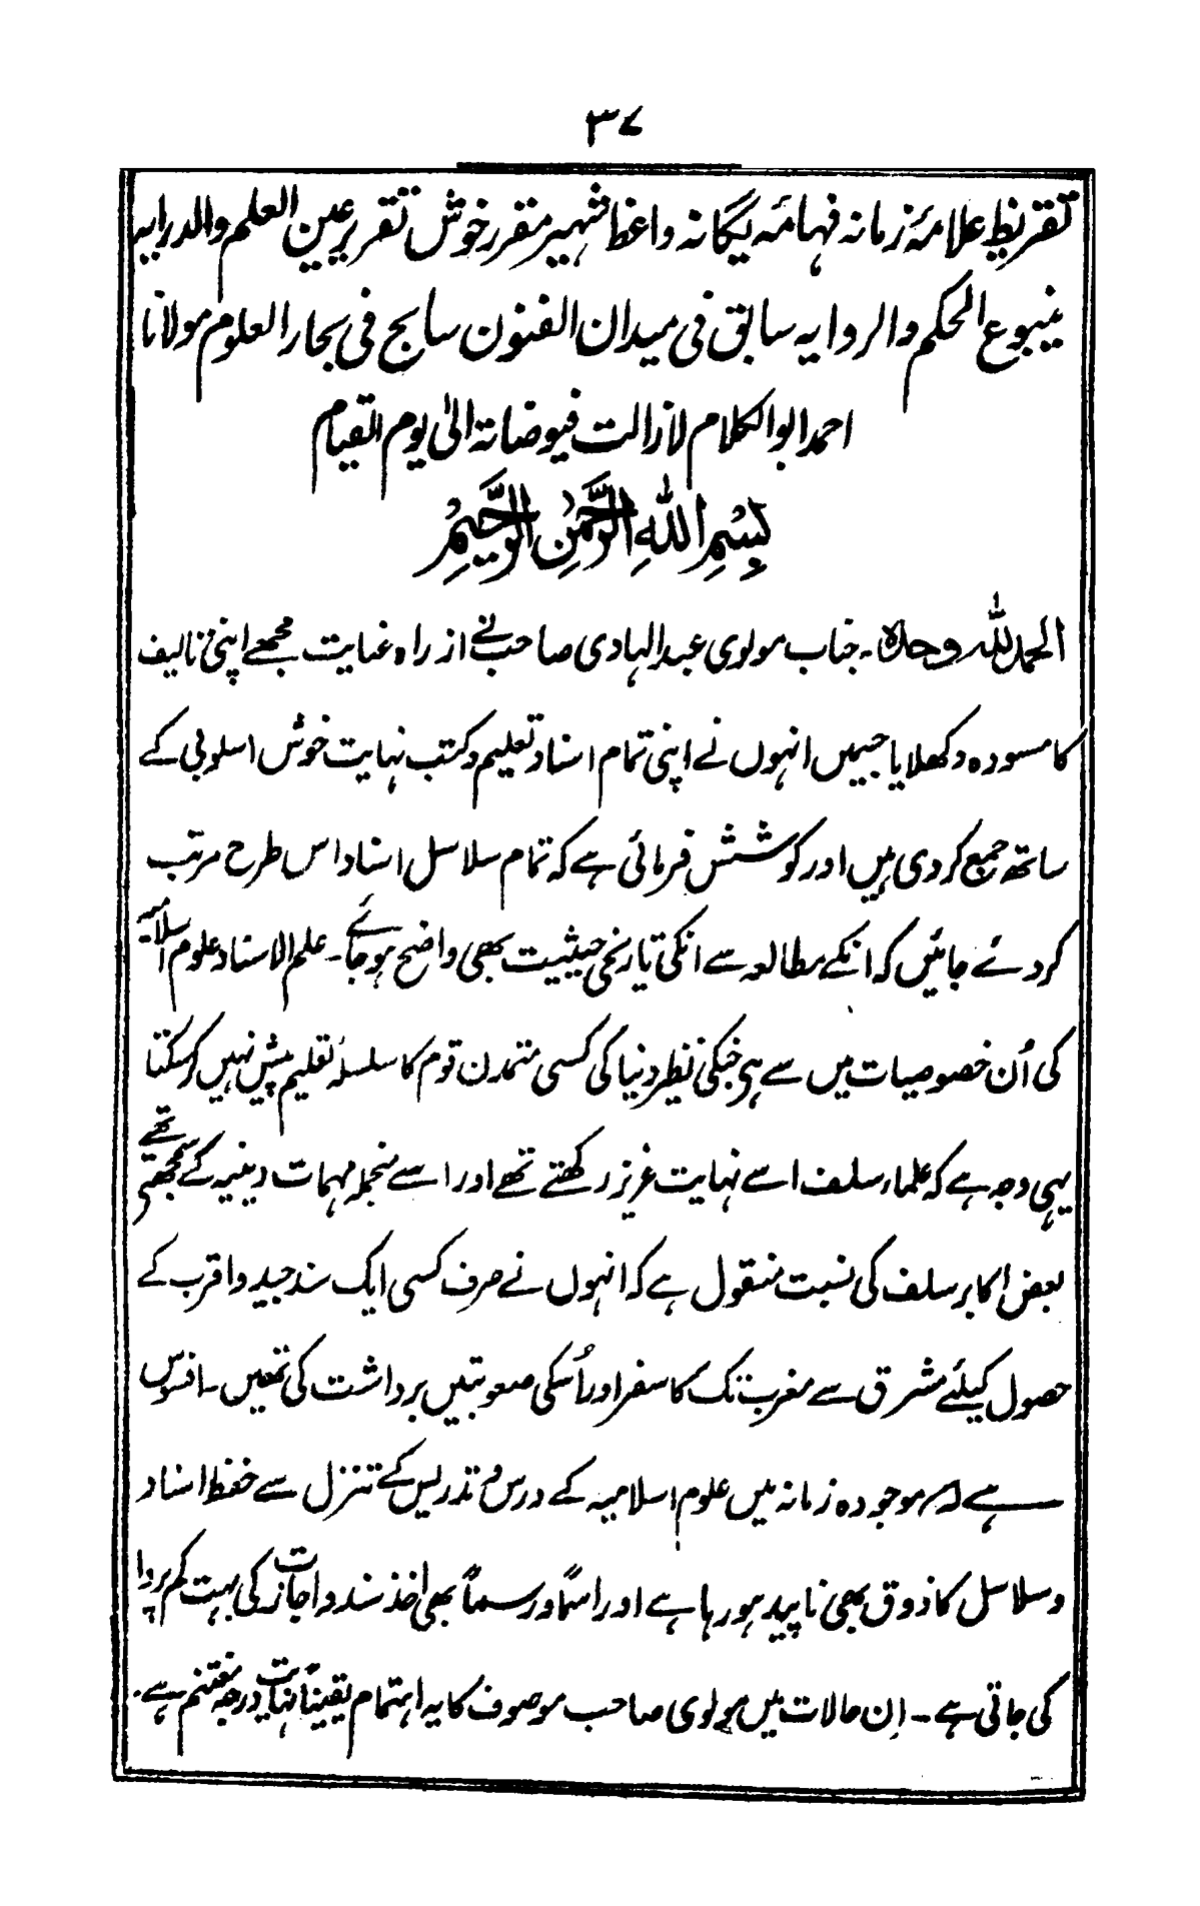 ۳۷
تقریظ علامۂ زمانہ فہامۂ یگانہ واعظ شہیر مقرر خوش تقریر عین العلم والدرایہ
ینبوع الحکم والروایہ سابق فی میدان الفنون سابح فی بحار العلوم مولانا
احمد ابو الکلام لازالت فیوضاتہ الیٰ یوم القیام
بِسْمِ اللّٰهِ الرَّحْمٰنِ الرَّحِيْمِ
الحمد للّٰہ وحدہ ۔ جناب مولوی عبدالہادی صاحب نے از راہ عنایت مجھے اپنی تالیف
کا مسودہ دکھلایا جسمیں انہوں نے اپنی تمام اسناد تعلیم و کتب نہایت خوش اسلوبی کے
ساتھ جمع کر دی ہیں اور کوشش فرمائی ہے کہ تمام سلاسل اسناد اس طرح مرتب
کر دئے جائیں کہ انکے مطالعہ سے انکی تاریخی حیثیت بھی واضح ہو جائے ۔ علم الاسناد علوم اسلامیہ
کی اُن خصوصیات میں سے ہی جنکی نظیر دنیا کی کسی متمدن قوم کا سلسلۂ تعلیم پیش نہیں کر سکتا
یہی وجہ ہے کہ علماء سلف اسے نہایت عزیز رکھتے تھے اور اسے منجملہ مہمات دینیہ کے سمجھتے تھے
بعض اکابر سلف کی نسبت منقول ہے کہ انہوں نے صرف کسی ایک سند جید و اقرب کے
حصول کیلئے مشرق سے مغرب تک کا سفر اور اُسکی صعوبتیں برداشت کی تھیں ۔ افسوس
ہے کہ موجودہ زمانہ میں علوم اسلامیہ کے درس و تدریس کے تنزل سے حفظ اسناد
و سلاسل کا ذوق بھی ناپید ہو رہا ہے اور اسمًا و رسمًا بھی اخذ سند و اجازت کی بہت کم پروا
کی جاتی ہے ۔ اِن حالات میں مولوی صاحب موصوف کا یہ اہتمام یقینًا نہایت درجہ مغتنم ہے ۔